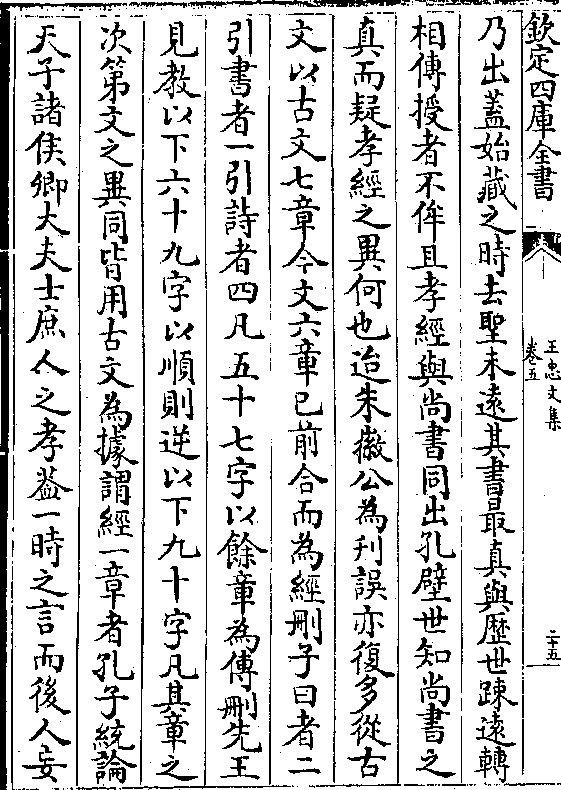 欽定四庫全書
王忠文集
卷五
二十五
乃出蓋始藏之時去聖未遠其書最真與歷世踈遠轉
相傳授者不侔且孝經與尚書同出孔壁世知尚書之
真而疑孝經之異何也迨朱徽公為刋誤亦復多從古
文以古文七章今文六章已前合而為經刪子曰者二
引書者一引詩者四凡五十七字以餘章為傳刪先王
見教以下六十九字以順則逆以下九十字凡其章之
次第文之異同皆用古文為據謂經一章者孔子統論
天子諸侯卿大夫士庶人之孝葢一時之言而後人妄